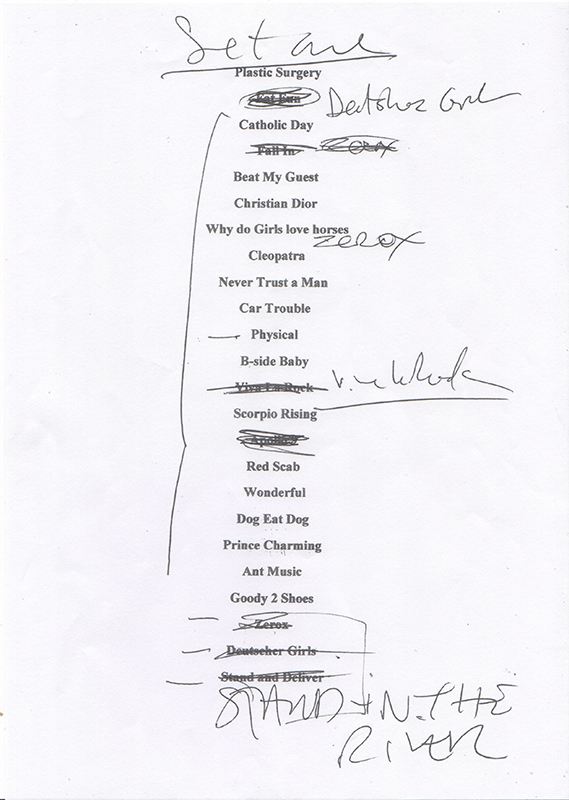 Set one
Plastic Surgery
Fat Fun Deutsher Girls
Catholic Day
Fall In Zerox
Beat My Guest
Christian Dior
Why do Girls love horses
ZEROX
Cleopatra
Never Trust a Man
Car Trouble
Physical
B-side Baby
Viva La Rock
Scorpio Rising
Red Scab
Wonderful
Dog Eat Dog
Prince Charming
Ant Music
Goody 2 Shoes
Zerox
Deutscher Girls
Stand and Deliver
STAND IN THE
RIVER